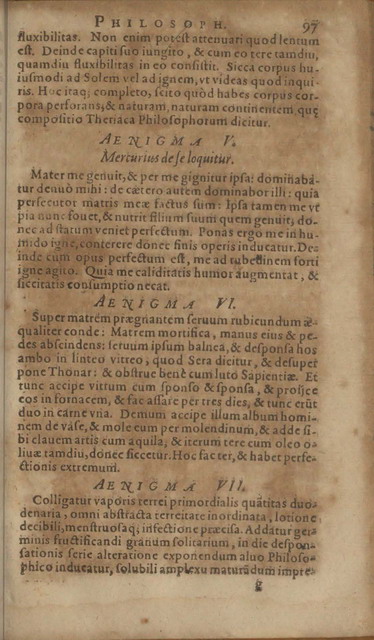 PHILOSOPH. 97
fluxibilitas. Non enim potest attenuari quod lentum
est. Deinde capiti suo iungito, & cum eo tere tamdiu,
quamdiu fluxibilitas in eo consistit. Sicca corpus hu-
iusmodi ad Solem vel ad ignem, vt videas quod inqui-
ris. Hoc itaq; completo, scito quòd habes corpus cor-
pora perforans, & naturam, naturam continentem, quę
compositio Theriaca Philosophorum dicitur.
AENIGMA V.
Mercurius de se loquitur.
Mater me genuit, & per me gignitur ipsa: dominabā-
tur denuò mihi: de cætero autem dominabor illi: quia
persecutor matris meæ factus sum: Ipsa tamen me vt
pia nunc fouet, & nutrit filium suum quem genuit, do-
nec ad statum veniet perfectum. Ponas ergo me in hu-
mido igne, conterere donec finis operis inducatur. De-
inde cum opus perfectum est, me ad tubectinem forti
igne agito. Quia me caliditatis humor augmentat, &
siccitatis consumptio necat.
AENIGMA VI.
Super matrem prægnantem seruum rubicundum æ-
qualiter conde: Matrem mortifica, manus eius & pe-
des abscindens: seruum ipsum balnea, & desponsa hos
ambo in linteo vitreo, quod Sera dicitur, & desuper
pone Thonar: & obstrue benè cum luto Sapientiæ. Et
tunc accipe vitrum cum sponso & sponsa, & proijce
eos in fornacem, & fac assare per tres dies, & tunc erūt
duo in carne vna. Demum accipe illum album homi-
nem de vase, & mole eum per molendinum, & adde si-
bi clauem artis cum aquila, & iterum tere cum oleo o-
liuæ tamdiu, donec siccetur. Hoc fac ter, & habet perfe-
ctionis extremum.
AENIGMA VII.
Colligatur vaporis terrei primordialis quātitas duo-
denaria, omni abstracta terreitate inordinata, lotione
decibili, menstruosaq; infectione præcisa. Addatur ger-
minis fructificandi granum solitarium, in die despon-
sationis serie alteratione exponendum aluo Philoso-
phico inducatur, solubili amplexu maturādum impre-
g